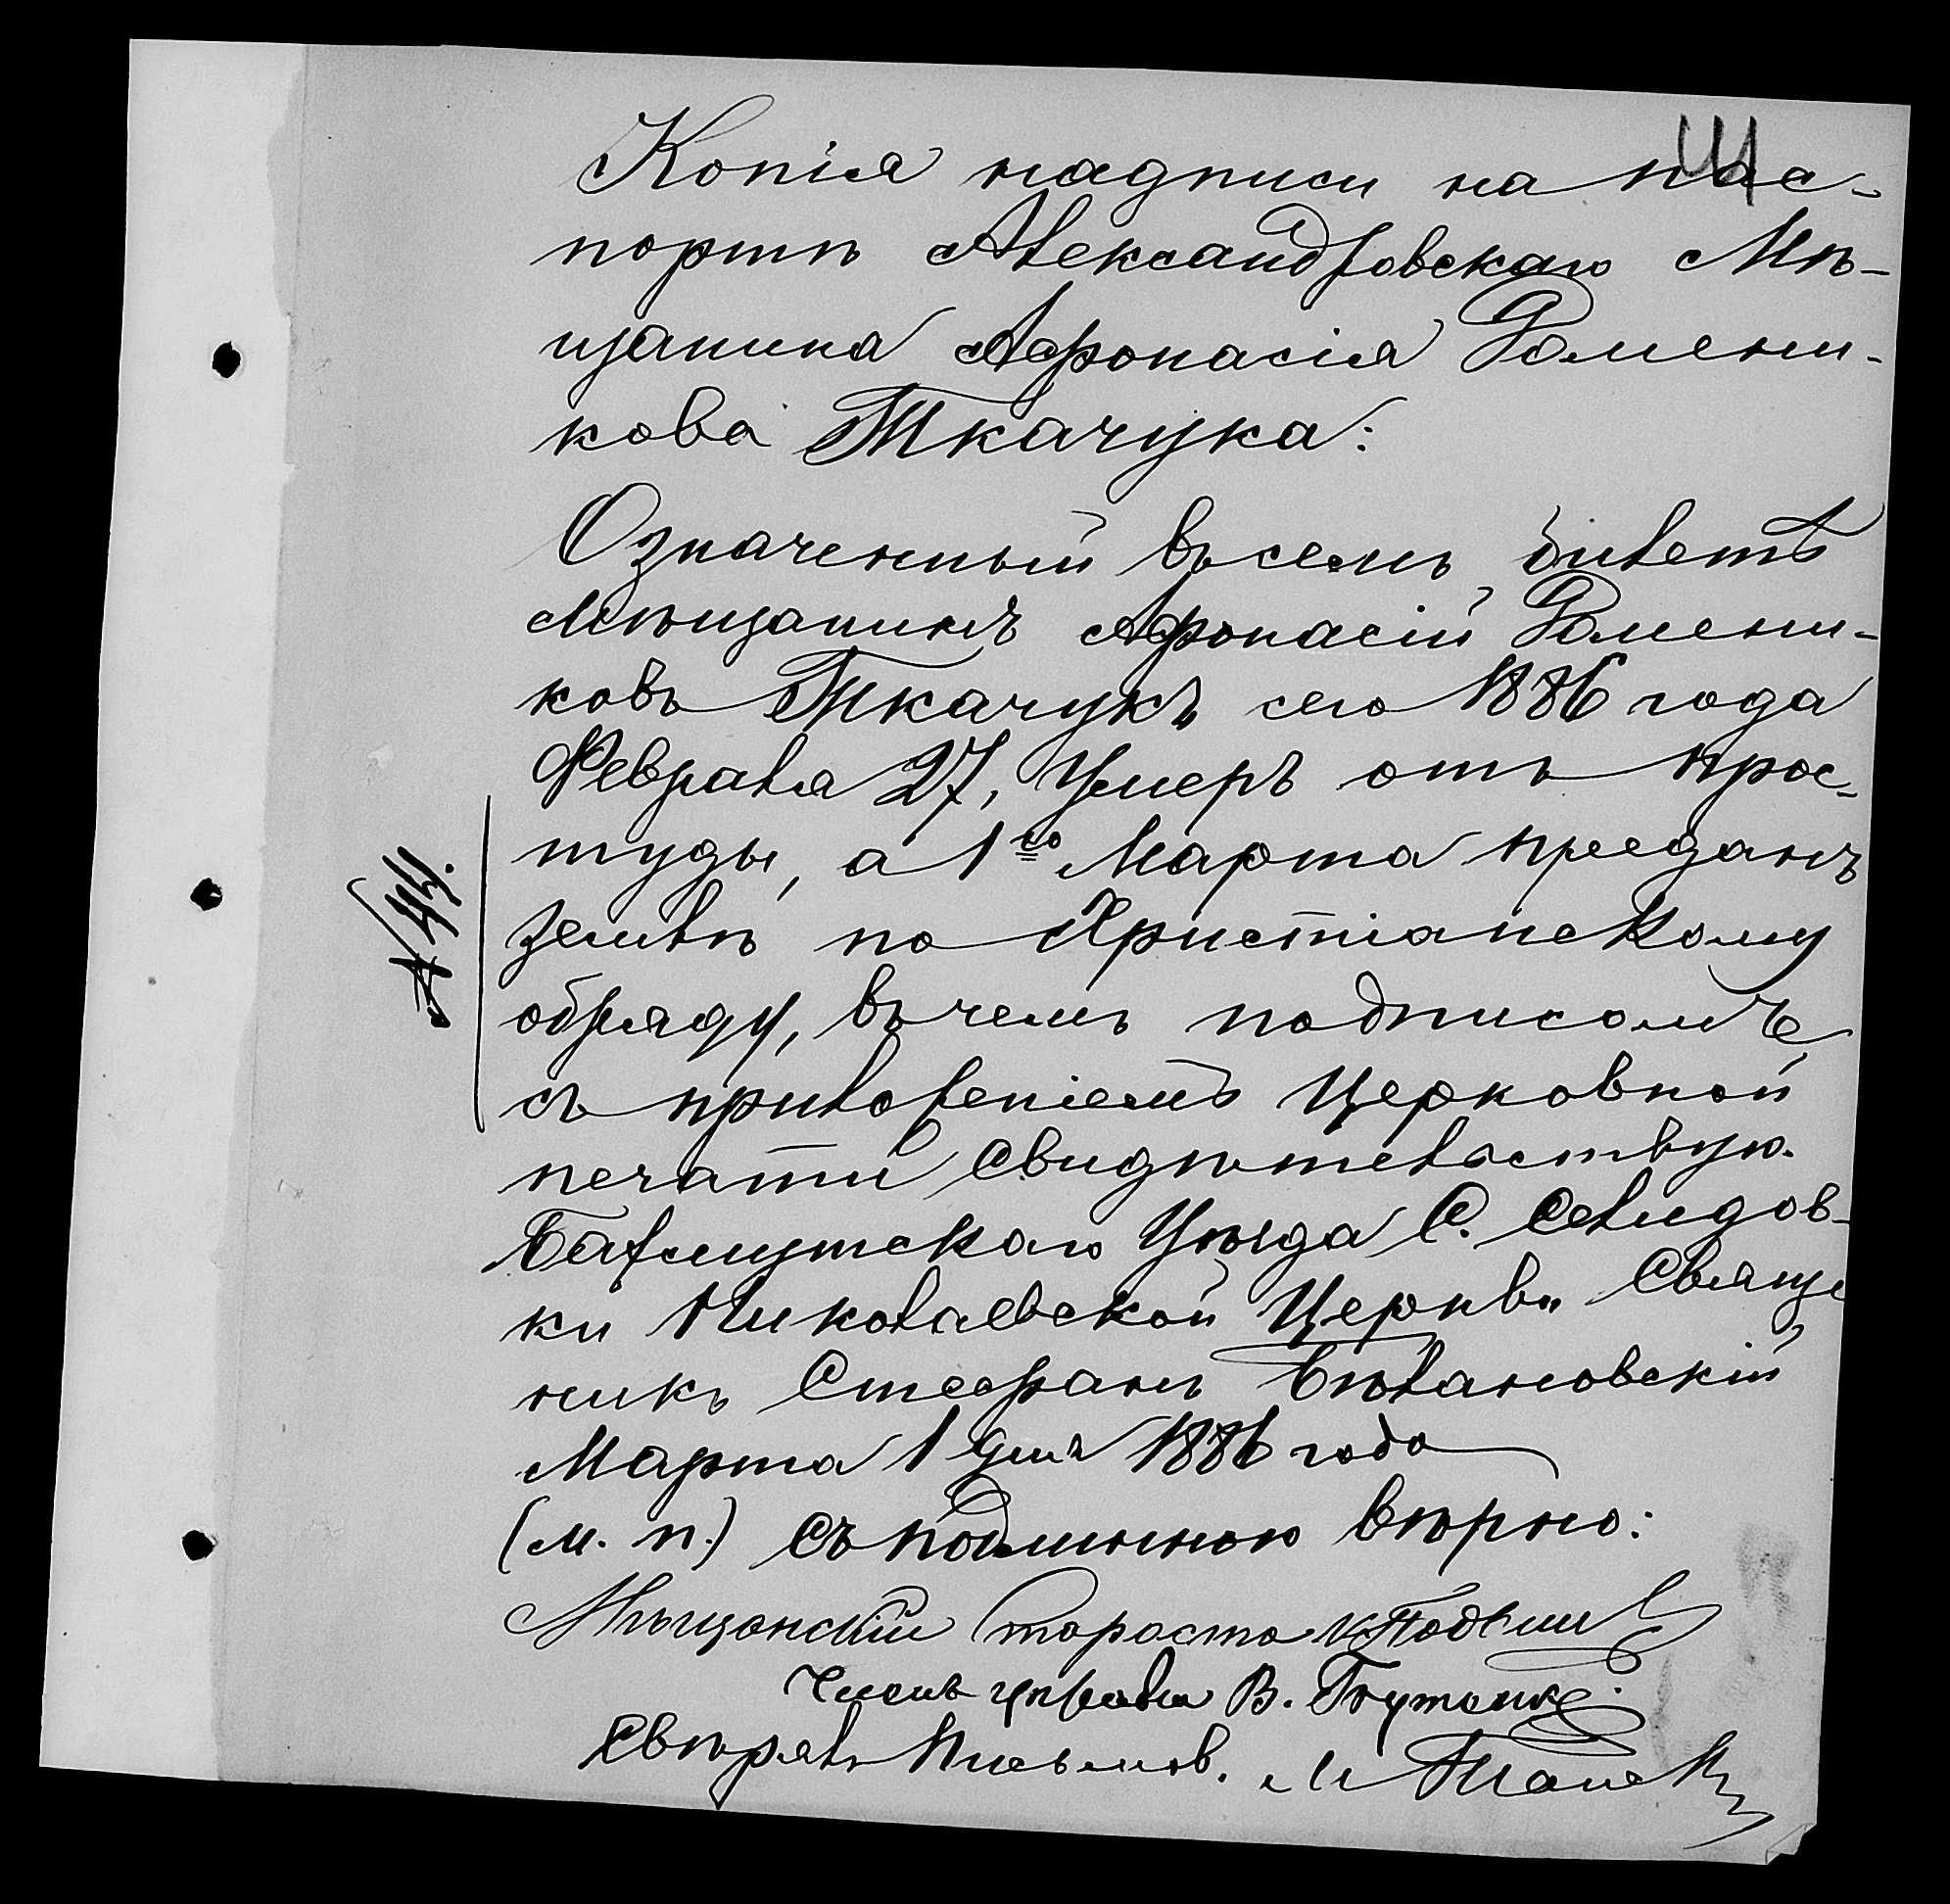 Копія надписи на пас-
портѣ Александровскаго Мѣ-
щанина Афонасія Фомени-
кова Ткачука:
Означенный въ семъ билетѣ
Мѣщанинъ Афонасій Фомени-
ковъ Ткачукъ сего 1886 года
Февраля 27, Умеръ отъ прос-
туды, а 1го Марта преданъ
землѣ по Христіанскому
обряду, въ чемъ подписомъ
съ приложеніемъ Церковной
печати свидѣтельствую.
Бахмутскаго Уѣзда С. Селидов-
ки Николаевской Церкви Свящ
никъ Стефанъ Бѣлановскій
Марта 1 дня 1886 года
(м. п.) Съ подлиннымъ вѣрно:
Мѣщанскій Староста
Членъ управы В.
Свѣрялъ Письмов.